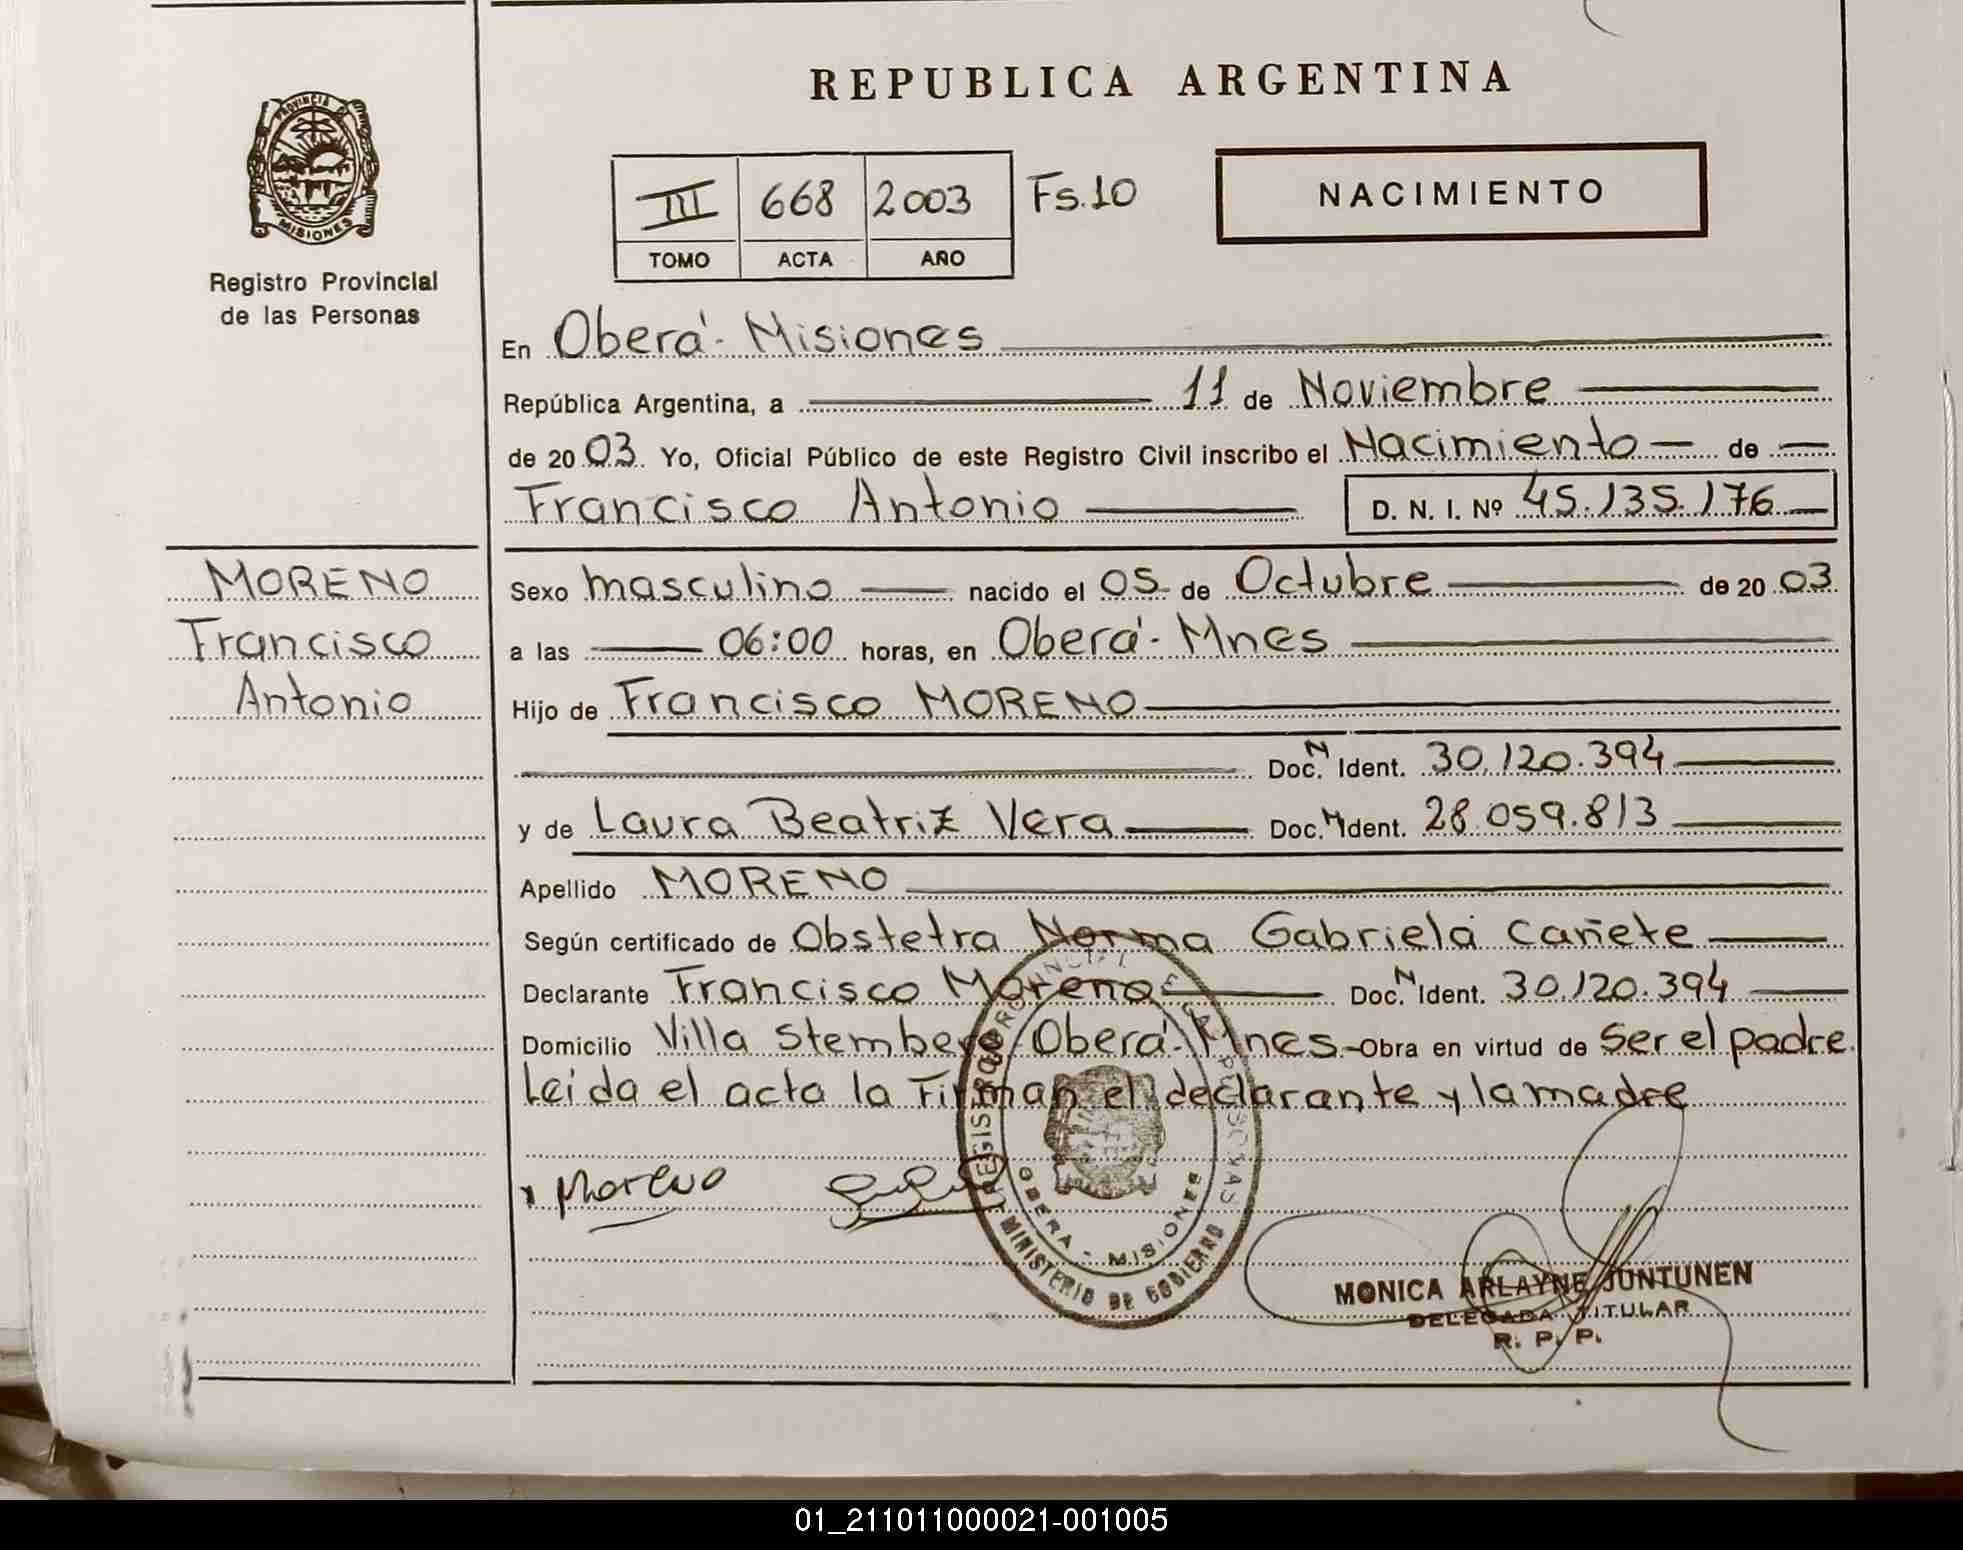 REPUBLICA ARGENTINA
PROVINCIA
MISIONES
Registro Provincial
de las Personas
III 668 2003 Fs.10
TOMO ACTA AÑO
NACIMIENTO
En Oberá - Misiones
República Argentina, a 11 de Noviembre
de 20 03. Yo, Oficial Público de este Registro Civil inscribo el Nacimiento de
Francisco Antonio D. N. I. Nº 45.135.176
MORENO
Francisco
Antonio
Sexo masculino nacido el 05 de Octubre de 20 03
a las 06:00 horas, en Oberá - Mnes
Hijo de Francisco MORENO
Doc. N Ident. 30.120.394
y de Laura Beatriz Vera Doc. N Ident. 28.059.813
Apellido MORENO
Según certificado de Obstetra Norma Gabriela Cañete
Declarante Francisco Moreno Doc. N Ident. 30.120.394
Domicilio Villa Stemberg Oberá - Mnes - Obra en virtud de Ser el padre
Leida el acta la Firman el declarante y la madre
Moreno
REGISTRO PROVINCIAL DE LAS PERSONAS
OBERA - MISIONES
MINISTERIO DE GOBIERNO
MONICA ARLAYNE JUNTUNEN
DELEGADA TITULAR
R. P. P.
01_211011000021-001005